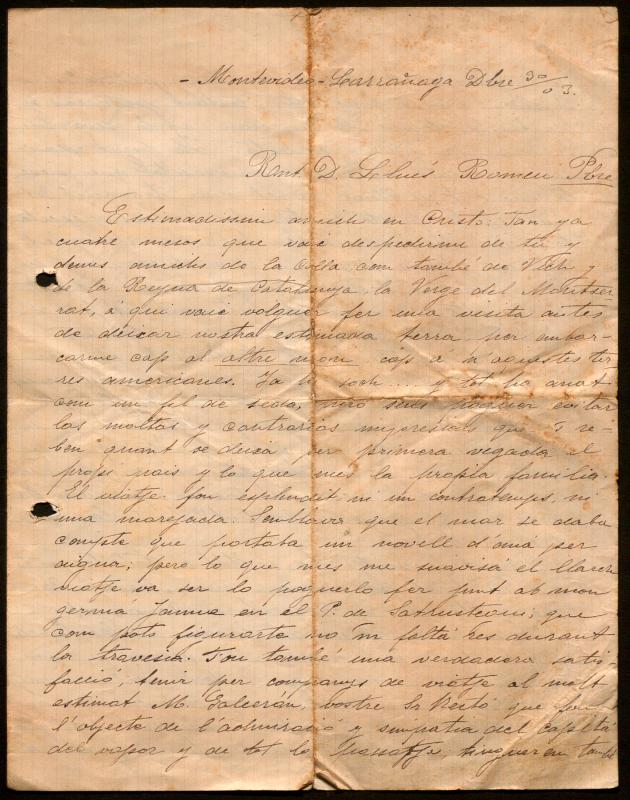 - Montevideo - Larrañaga Dbre 30/03.
Rnt D. Lluís Romeu Pbre
Estimadissim amich en Cristo: Fan ya
cuatre mesos que vaig despedirme de tu y
demes amichs de la Colla com també de Vich y
de la Reyna de Catalunya, la Verge del Montser
rat, á qui vaig volguer fer una visita antes
de deixar nostra estimada terra per embar-
carme cap al altre mon, cap á n aquestes ter
res americanes. Ja hi soch.... y tot ha anat
com un fil de seda, pero sens poguer evitar
las moltas y contrarias impresions que s re-
ben quant se deixa per primera vegada el
propi pais y lo que mes la propia familia.
El viatge fou esplendit ni un contratemps, ni
una marejada. Semblava que el mar se daba
compte que portaba un novell d'aná per
aigua; pero lo que mes me suavisá el llarch
viatje va ser lo poguerlo fer junt ab mon
germá Jaume en el P. de Satrustegui; que
com pots figurarte no 'm faltá res durant
la travesia. Fou també una verdadera satis
facció, tenir per companys de viatje al molt
estimat M. Galcerán, vostre Sr Rectó que fou
l'objecte de l'admiració y simpatia del capitá
del vapor y de tot lo passatge, tinguerem també